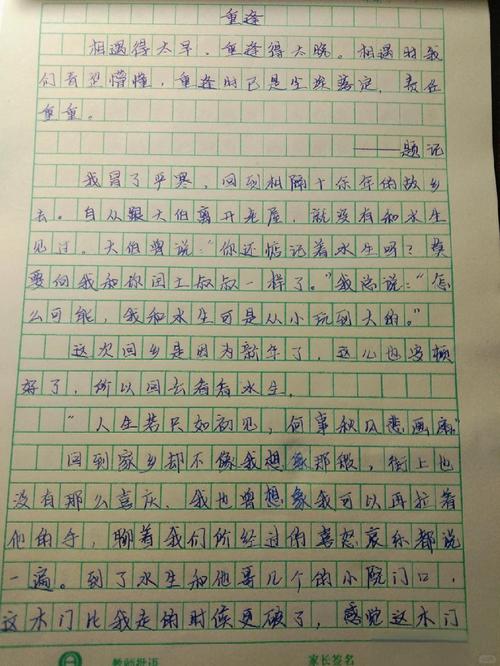 重逢
相遇得太早，重逢得太晚。相遇时我
们青涩懵懂，重逢时已是尘埃落定，责任
重重。
——题记
我冒了严寒，回到相隔十余年的故乡
去。自从跟大伯离开老屋，就没有和水生
见过。大伯曾说：“你还惦记着水生吗？莫
要向我和你闰土叔叔一样了。”我总说：“怎
么可能，我和水生可是从小玩到大的。”
这次回乡是因为新年了，这儿也安顿
好了，所以回去看看水生。
“人生若只如初见，何事秋风悲画扇”
回到家乡却不像我想象那般，街上也
没有那么喜庆。我也曾想象我可以再拉着
他的手，聊着我们所经过的喜怒哀乐都说
一遍。到了水生和他哥几个的小院门口，
这木门比我走的时候更破了，感觉这木门
教师批语
家长签名